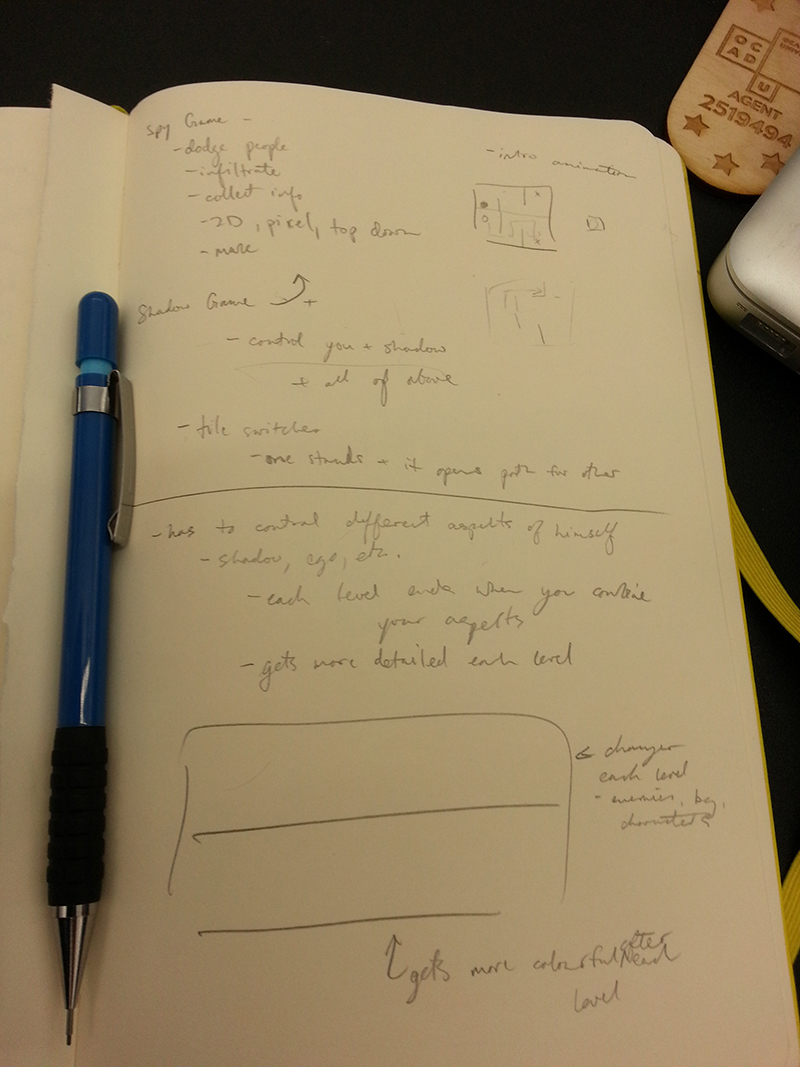 Spy Game -
- dodge people
- infiltrate
- collect info
- 2D, pixel, top down
- maze
- intro animation
Shadow Game +
- control you + shadow
+ all of above
- tile switches
- one stands + it opens path for other
- has to control different aspects of himself
- shadow, ego, etc.
- each level ends when you combine
your aspects
- gets more detailed each level
changes
each level
- enemies, bg,
characters
gets more colourful after each
level
OC
AD
U
AGENT
2519494